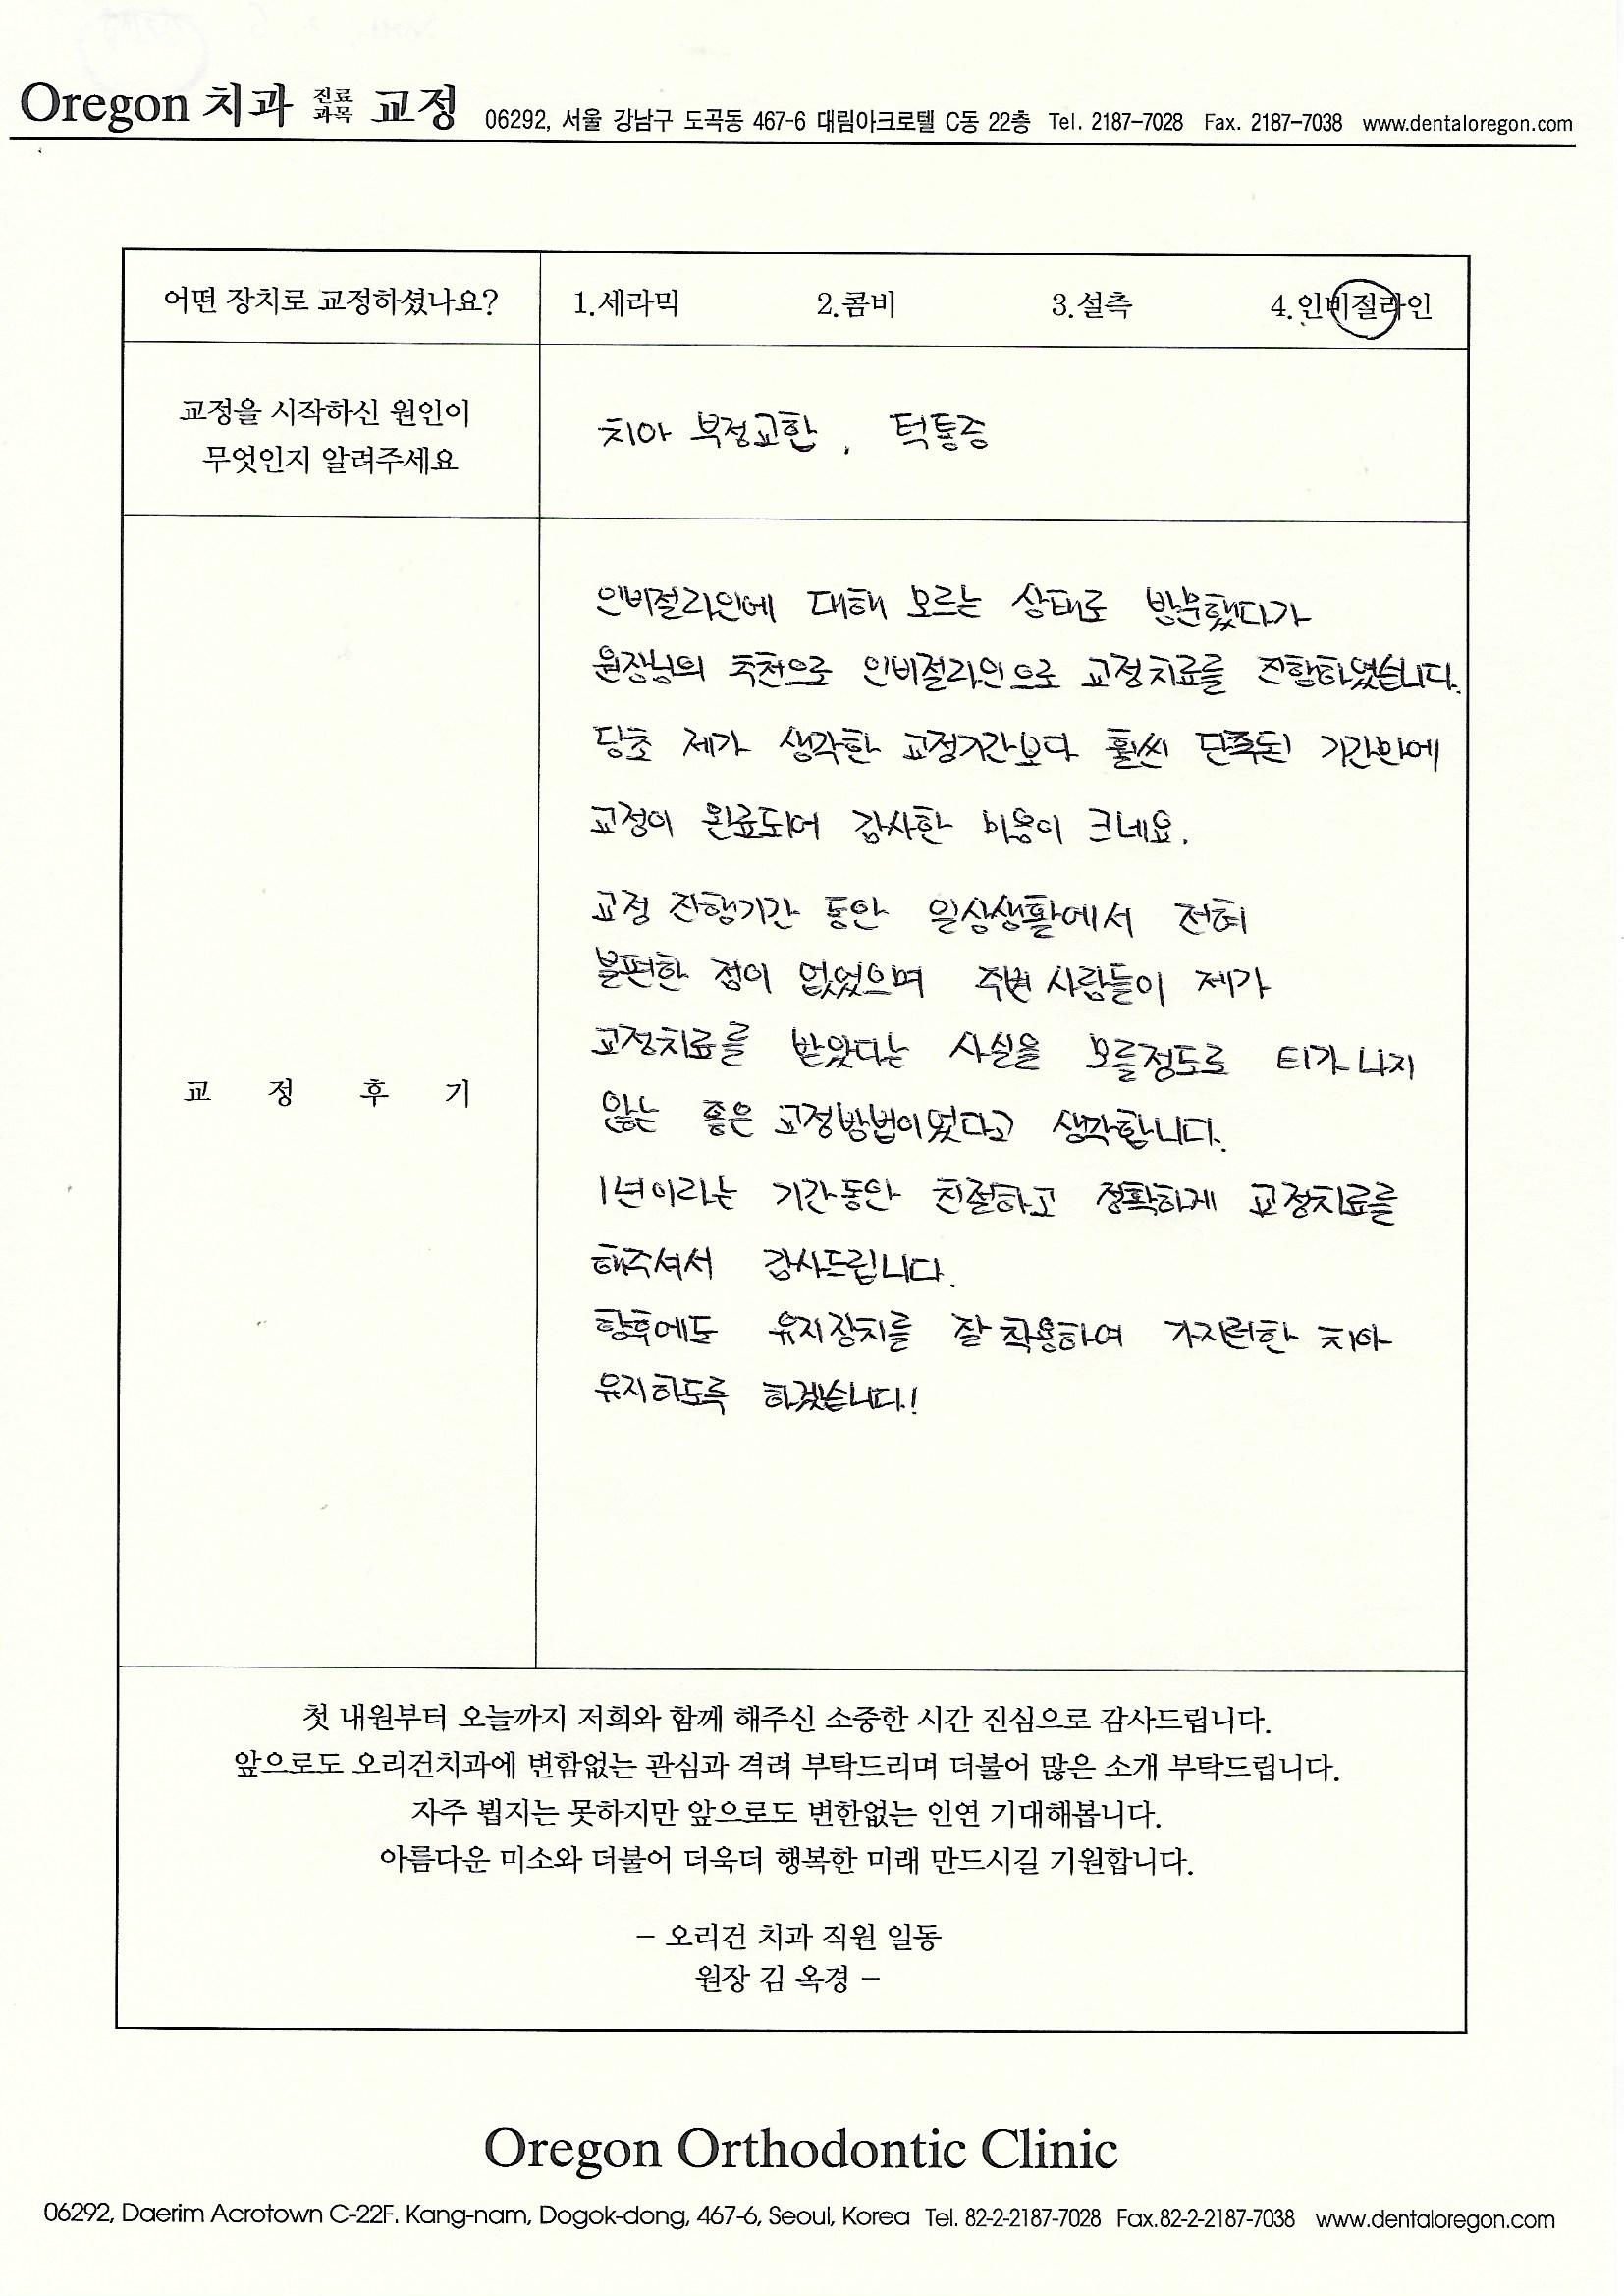 Oregon 치과 진료과목 교정 06292, 서울 강남구 도곡동 467-6 대림아크로텔 C동 22층 Tel. 2187-7028 Fax. 2187-7038 www.dentaloregon.com
어떤 장치로 교정하셨나요? 1.세라믹 2.콤비 3.설측 4.인비절라인
교정을 시작하신 원인이
무엇인지 알려주세요
치아 부정교합, 턱통증
교 정 후 기
인비절라인에 대해 모르는 상태로 방문했다가
원장님의 추천으로 인비절라인으로 교정치료를 진행하였습니다.
당초 제가 생각한 교정기간보다 훨씬 단축된 기간만에
교정이 완료되어 감사한 마음이 크네요.
교정 진행기간 동안 일상생활에서 전혀
불편한 점이 없었으며 주변 사람들이 제가
교정치료를 받았다는 사실을 모를정도로 티가 나지
않는 좋은 교정방법이었다고 생각합니다.
1년이라는 기간동안 친절하고 정확하게 교정치료를
해주셔서 감사드립니다.
향후에도 유지장치를 잘 착용하여 가지런한 치아
유지하도록 하겠습니다!
첫 내원부터 오늘까지 저희와 함께 해주신 소중한 시간 진심으로 감사드립니다.
앞으로도 오리건치과에 변함없는 관심과 격려 부탁드리며 더불어 많은 소개 부탁드립니다.
자주 뵙지는 못하지만 앞으로도 변한없는 인연 기대해봅니다.
아름다운 미소와 더불어 더욱더 행복한 미래 만드시길 기원합니다.
– 오리건 치과 직원 일동
원장 김 옥경 –
Oregon Orthodontic Clinic
06292, Daerim Acrotown C-22F. Kang-nam, Dogok-dong, 467-6, Seoul, Korea Tel. 82-2-2187-7028 Fax.82-2-2187-7038 www.dentaloregon.com